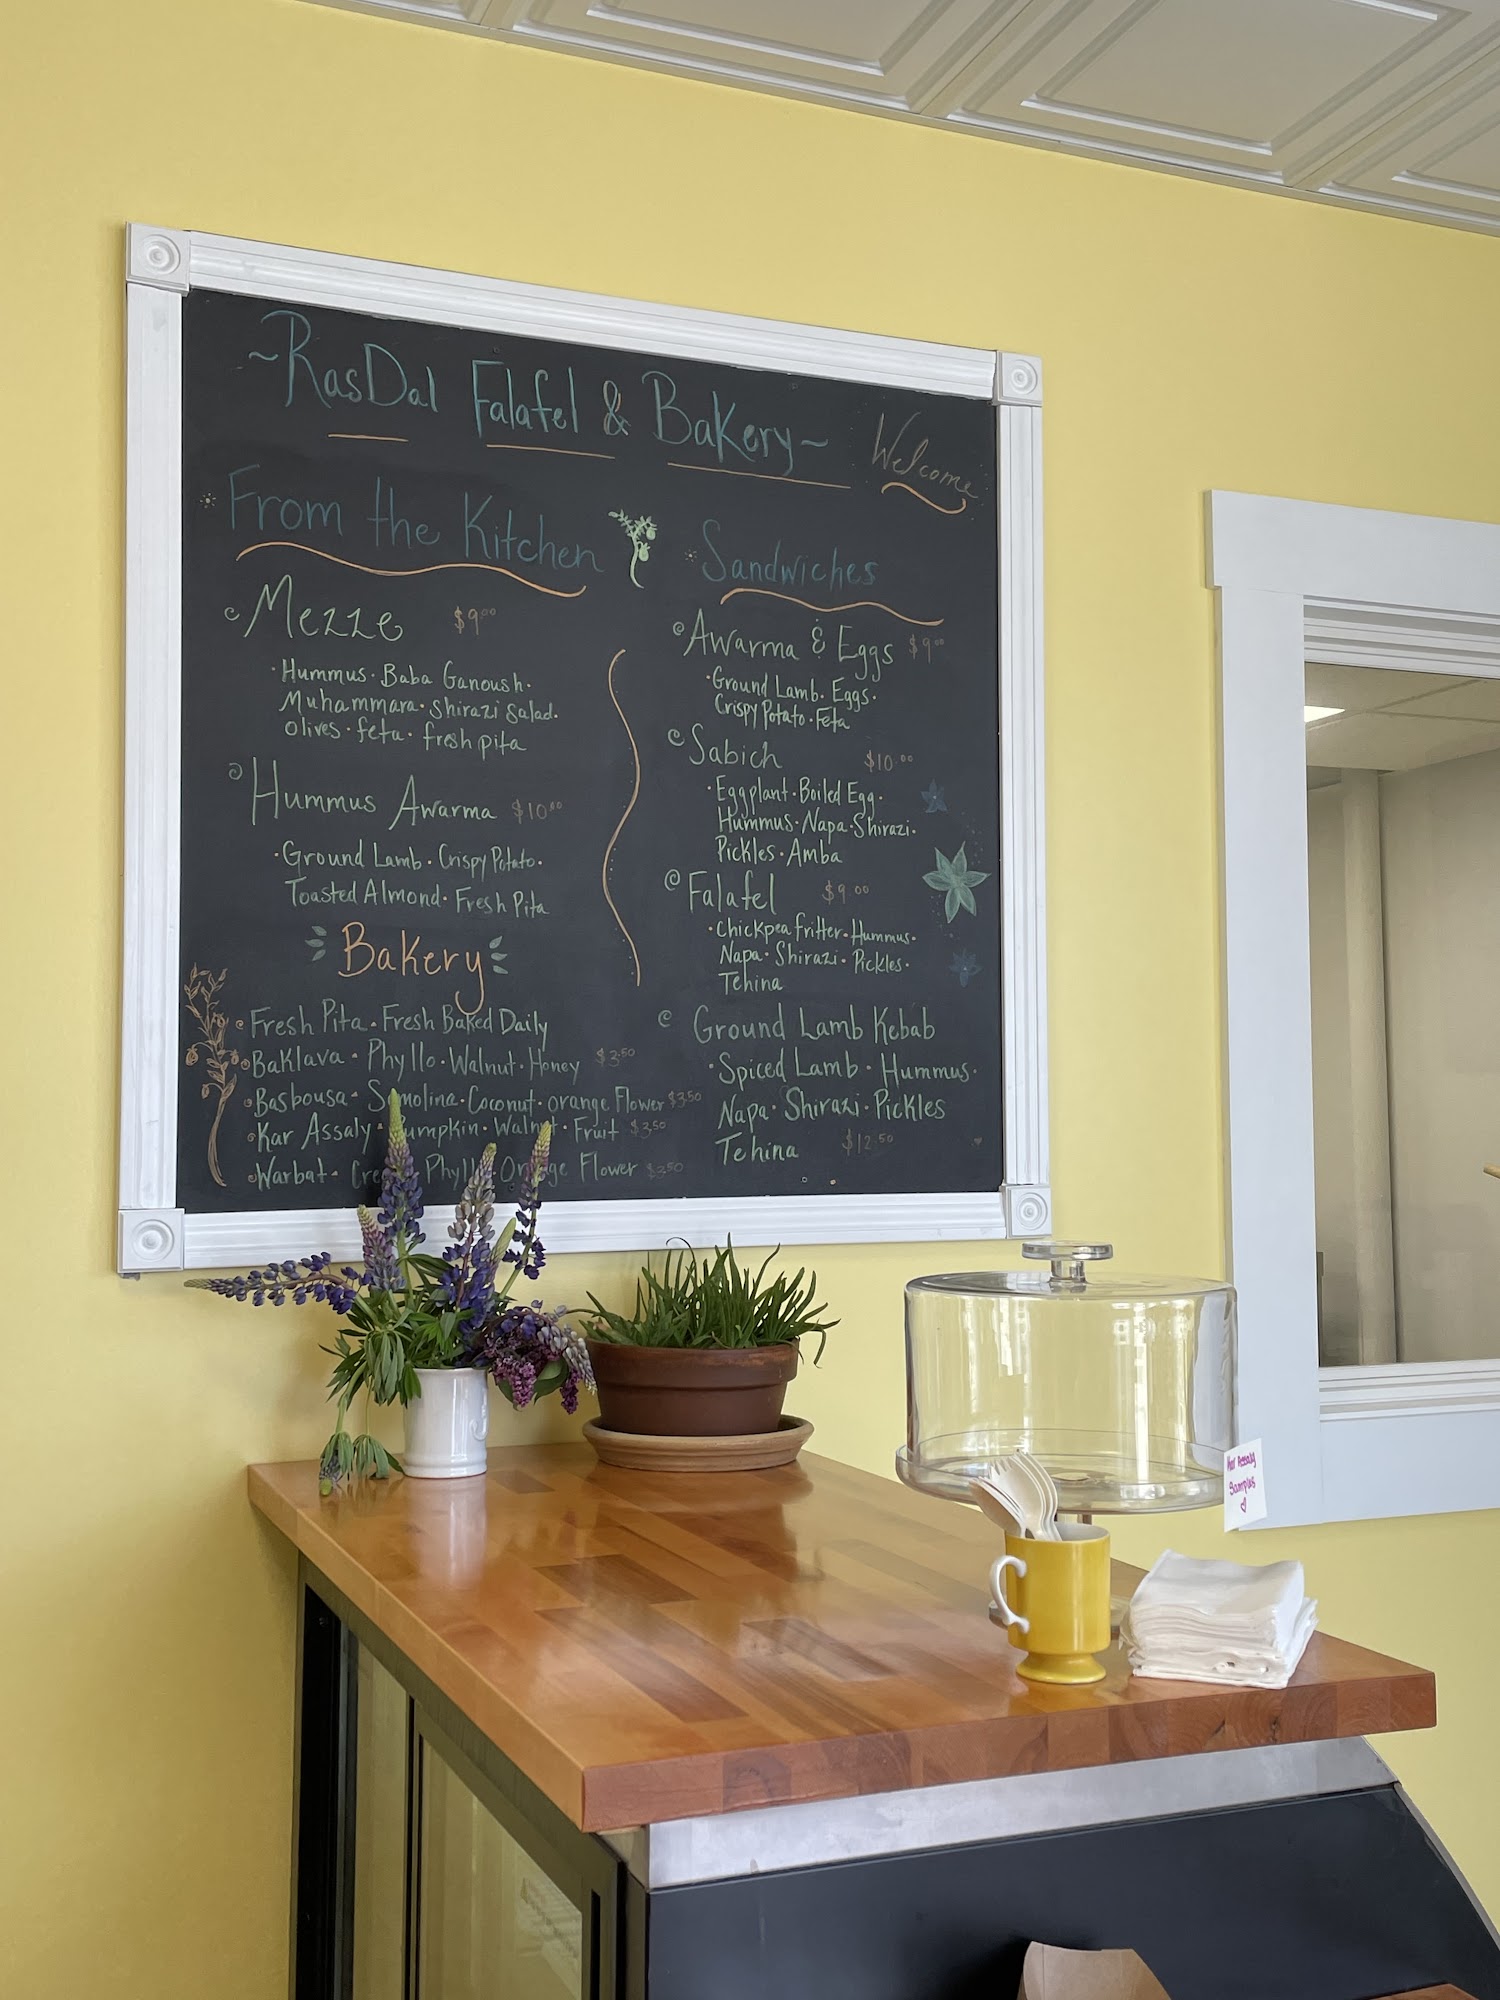 ~RasDal Falafel & Bakery~
Welcome
From the Kitchen
Mezze $9.00
·Hummus·Baba Ganoush·
Muhammara·Shirazi Salad·
Olives·feta·fresh pita
Hummus Awarma $10.00
·Ground Lamb·Crispy Potato·
Toasted Almond·Fresh Pita
Bakery
Fresh Pita·Fresh Baked Daily
Baklava·Phyllo·Walnut·Honey $3.50
Basbousa·Semolina·Coconut·orange Flower $3.50
Kar Assaly·Pumpkin·Walnut·Fruit $3.50
Warbat· Phyllo·Orange Flower $3.50
Sandwiches
Awarma & Eggs $9.00
·Ground Lamb·Eggs·
Crispy Potato·Feta
Sabich $10.00
·Eggplant·Boiled Egg·
Hummus·Napa·Shirazi·
Pickles·Amba
Falafel $9.00
·Chickpea fritter·Hummus·
Napa·Shirazi·Pickles·
Tehina
Ground Lamb Kebab
·Spiced Lamb·Hummus·
Napa·Shirazi·Pickles
Tehina $12.50
Kar Assaly
Samples